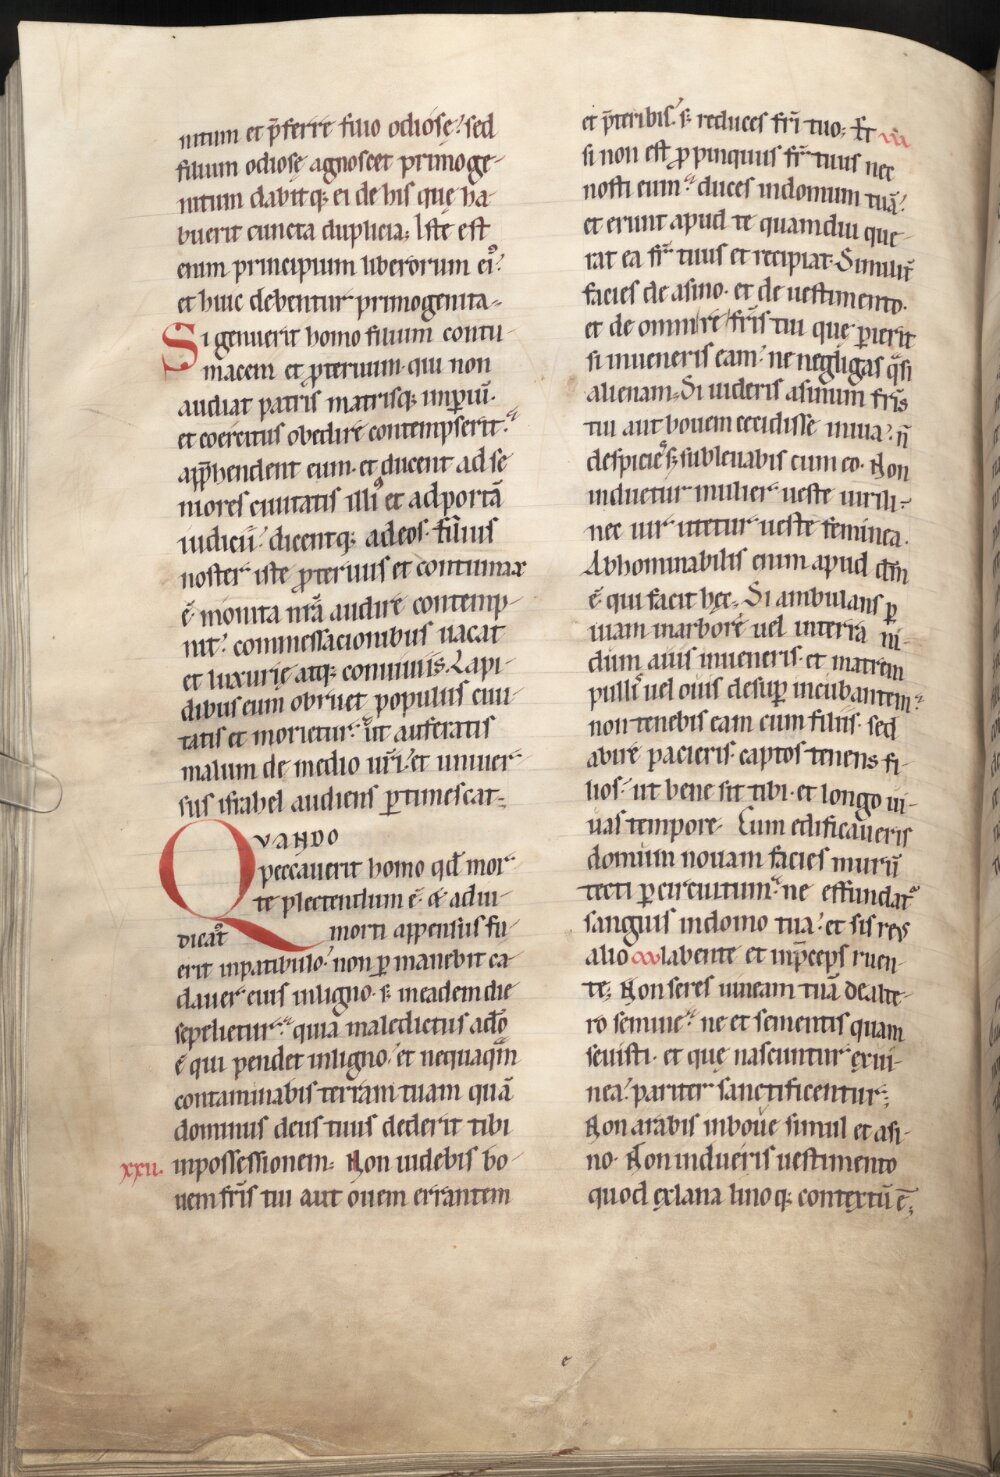 nitum et p̄ferre filio odiosę? sed
filium odiosę agnoscet primoge-
nitum dabitq; ei de his quę ha-
buerit cuncta duplicia; Iste est
enim principium liberorum ei᷒?
et huic debentur primogenita-
Si genuerit homo filium contu-
macem et ꝓteruum· qui non
audiat patris matrisq; imꝑiū·
et coercitus obedire contempserit·
app̄hendent eum· et ducent ad se-
niores ciuitatis illi᷒ et ad portā
iudicii? dicentq; ad eos· filius
noster iste ꝓteruus et contumax
ē· monita nr̄a audire contemp-
nit? commessacionibus uacat
et luxurię atq; conuiuiis. Lapi-
dibus eum obruet populus ciui-
tatis et morietur· ut auferatis
malum de medio ur̄i· et uniuer-
sus israhel audiens ꝑtimescat;
QVANDO
peccauerit homo qd̄ mor-
te plectendum ē· & adiu-
dicat᷒ morti appensus fu-
erit inpatibulo· non ꝑmanebit ca-
dauer eius inligno· s; ineadem die
sepelietur· quia maledictus adō
ē qui pendet inligno· et nequaqm̄
contaminabis terram tuam quā
dominus deus tuus dederit tibi
xxii. inpossessionem; Non uidebis bo-
uem fr̄is tui aut ouem errantem
et p̄teribis? s; reduces fr̄i tuo; Et
si non est ꝓpinquus fr̄ tuus nec
nosti eum· duces indomum tuā?
et erunt apud te quamdiu que-
rat ea fr̄ tuus et recipiat· Similit̄
facies de asino· et de uestimento·
et de omni re fr̄is tui que ꝑierit
si inueneris eam? ne negligas q̄si
alienam; Si uideris asinum fr̄is
tui aut bouem cecidisse inuia? n̄
despicies s; subleuabis cum eo· Non
induetur mulier ueste uirili-
nec uir utetur ueste feminea·
Abhominabilis enim apud dm̄
ē qui facit hęc; Si ambulans ꝑ
uiam inarbore uel interra ni-
dum auis inueneris· et matrem
pullis uel ouis desuꝑ incubantem
non tenebis eam cum filiis· sed
abire pacieris· captos tenens fi-
lios· ut bene sit tibi· et longo ui-
uas tempore· Cum edificaueris
domum nouam facies murū
tecti ꝑcircuitum· ne effundat᷒
sanguis indomo tua? et sis reus
alio labente et inp̄ceps ruen-
te; Non seres uineam tuā dealte-
ro semine· ne et sementis quam
seuisti· et que nascuntur exui-
nea? pariter sanctificentur;
Non arabis inboue simul et asi-
no· Non indueris uestimento
quod exlana linoq; contextū ē;
e